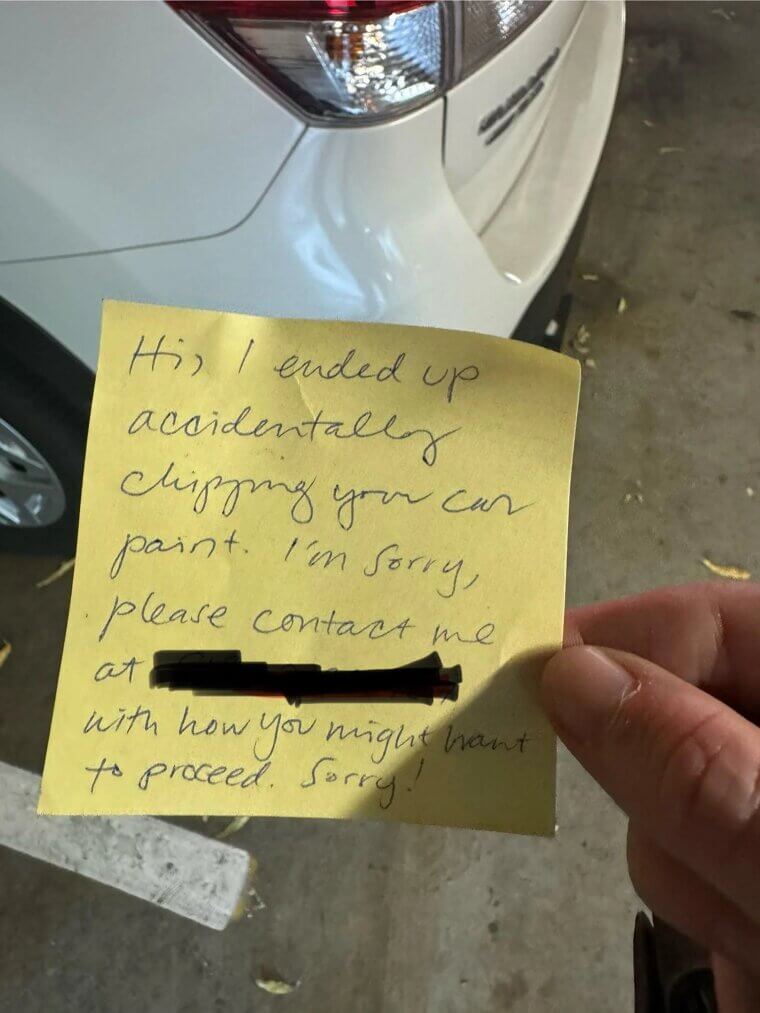 Hi, I ended up
accidentally
chipping your car
paint. I'm sorry,
please contact me
at
with how you might want
to proceed. Sorry!